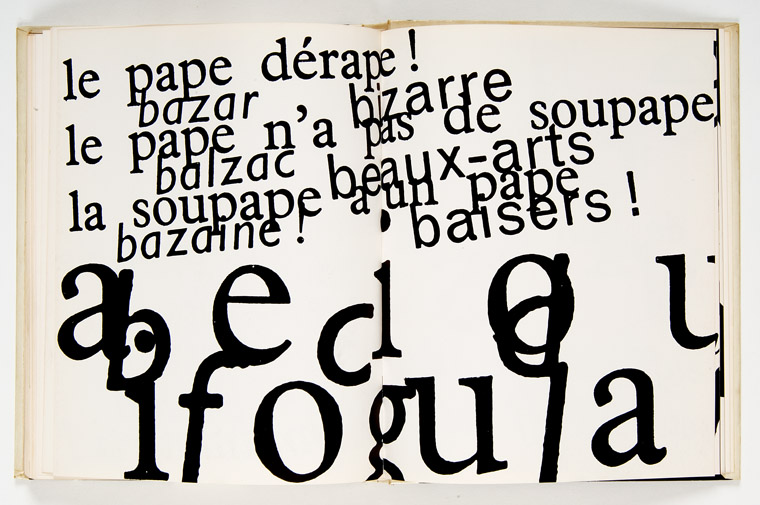 le pape dérape !
bazar bizarre
le pape n'a pas de soupape
balzac beaux-arts
la soupape a un pape
bazaine ! baisers !
a e i o u
b c d
i o u a
f g l